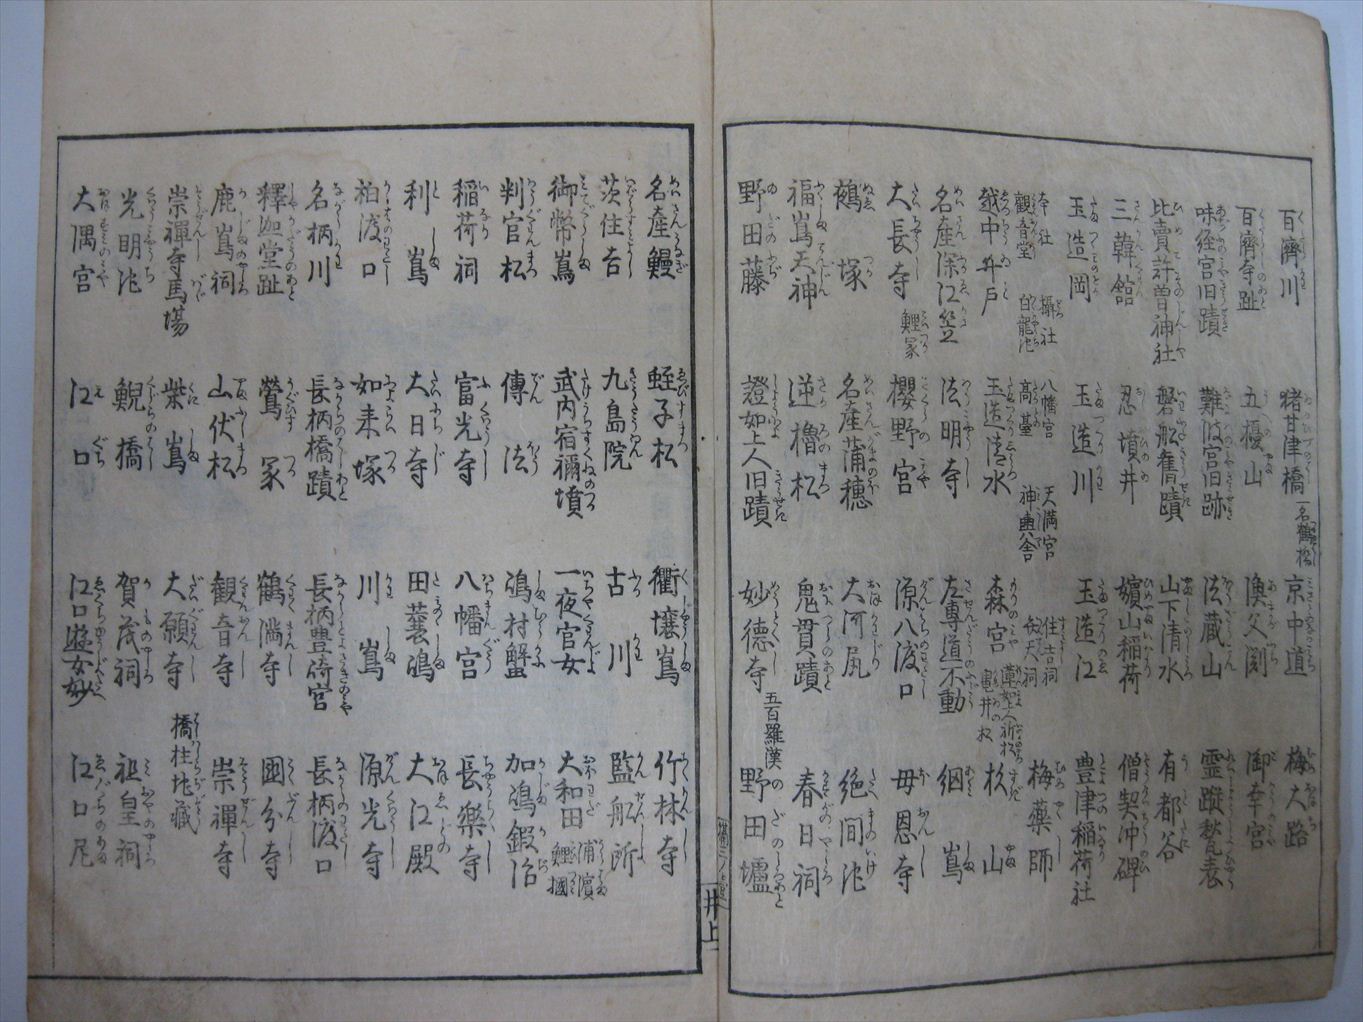 百濟川 猪甘津橋 一名鶴橋 京中道 梅大路
百濟寺趾 五擾山 漁父渕 御幸宮
味経宮旧蹟 難波宮旧跡 法蔵山 霊蹤甃表
比賣許曽神社 磐舩舊蹟 山下清水 有都谷
三韓舘 忍墳井 嬪山稲荷 僧契沖碑
玉造岡 玉造川 玉造江 豊津稲荷社
本社 攝社 八幡宮 天満宮 住吉祠
觀音堂 白龍池 高臺 神輿舎 梅薬師
越中井戸 玉造清水 森宮 蓮如上人祈松 亀井 杉山
名産深江笠 法明寺 左専道不動 綱嶌
大長寺 鯉冢 櫻野宮 源八渡口 母恩寺
鵺塚 名産蒲穗 大河尻 絶間池
福嶌天神 逆櫓松 鬼貫蹟 春日祠
野田藤 證如上人旧蹟 妙徳寺 五百羅漢 野田壚
井上
名産鰻 蛭子松 衢壌嶌 竹林寺
茨住吉 九島院 古川 監舩所
御幣嶌 武内宿禰墳 一夜官女 大和田 浦濱 鯉掴
判官松 傳法 鳰村蟹 加嶋鍜冶
稲荷祠 富光寺 八幡宮 長樂寺
利嶌 大日寺 田蓑嶋 大江殿
柏渡口 如来塚 川嶌 源光寺
名柄川 長柄橋蹟 長柄豊碕宮 長柄渡口
釋迦堂趾 鶯冢 鶴満寺 國分寺
鹿嶌祠 山伏松 観音寺 崇禅寺
崇禅寺馬場 柴嶌 大願寺 橋柱地蔵
光明池 鯢橋 賀茂祠 祖皇祠
大隅宮 江口 江口遊女妙 江口尼